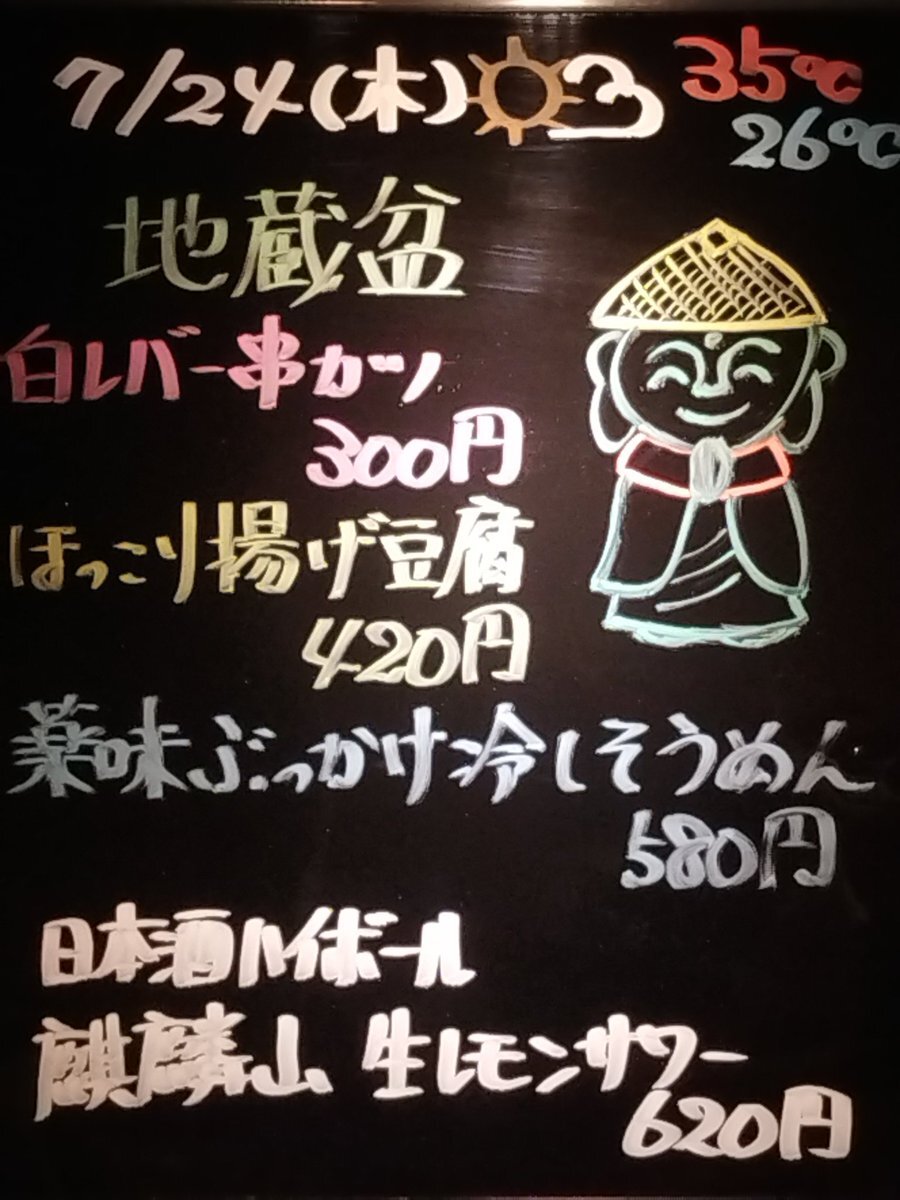 7/24(木)
35℃
26℃
地蔵盆
白レバー串カツ
300円
ほっこり揚げ豆腐
420円
薬味ぶっかけ冷しそうめん
580円
日本酒ハイボール
麒麟山 生レモンサワー
620円